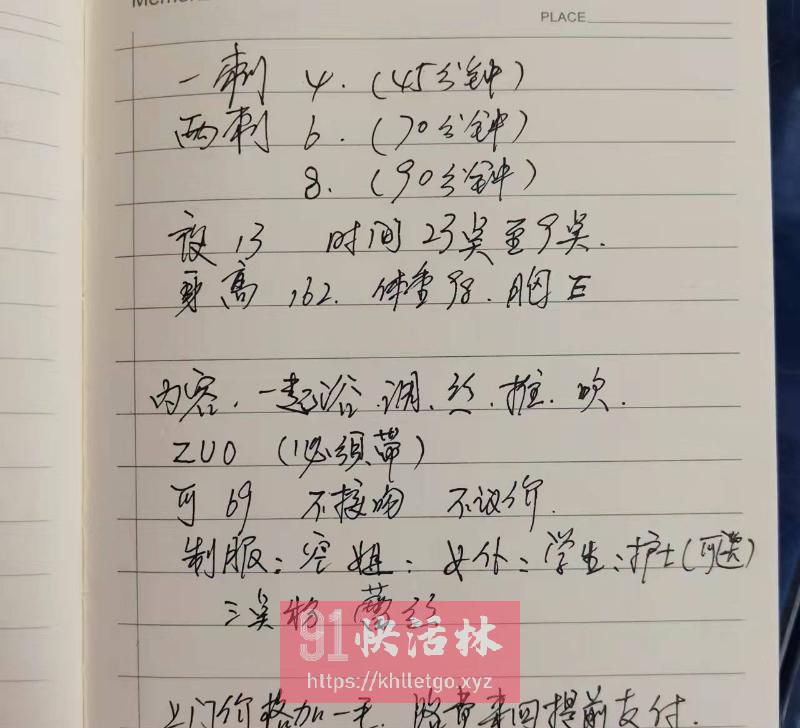 PLACE
一刺 4. (45分钟)
两刺 6. (70分钟)
8. (90分钟)
夜13 时间23点至9点.
身高162. 体重98. 胸E
内容. 一起浴.调.丝.推.吹.
ZUO (必须带)
可69 不接吻 不议价.
制服: 空姐: 女仆: 学生: 护士(可选)
三点粉 蕾丝
91快活林
https://khlletgo.xyz
上门价格加一千. 路费来回提前支付.